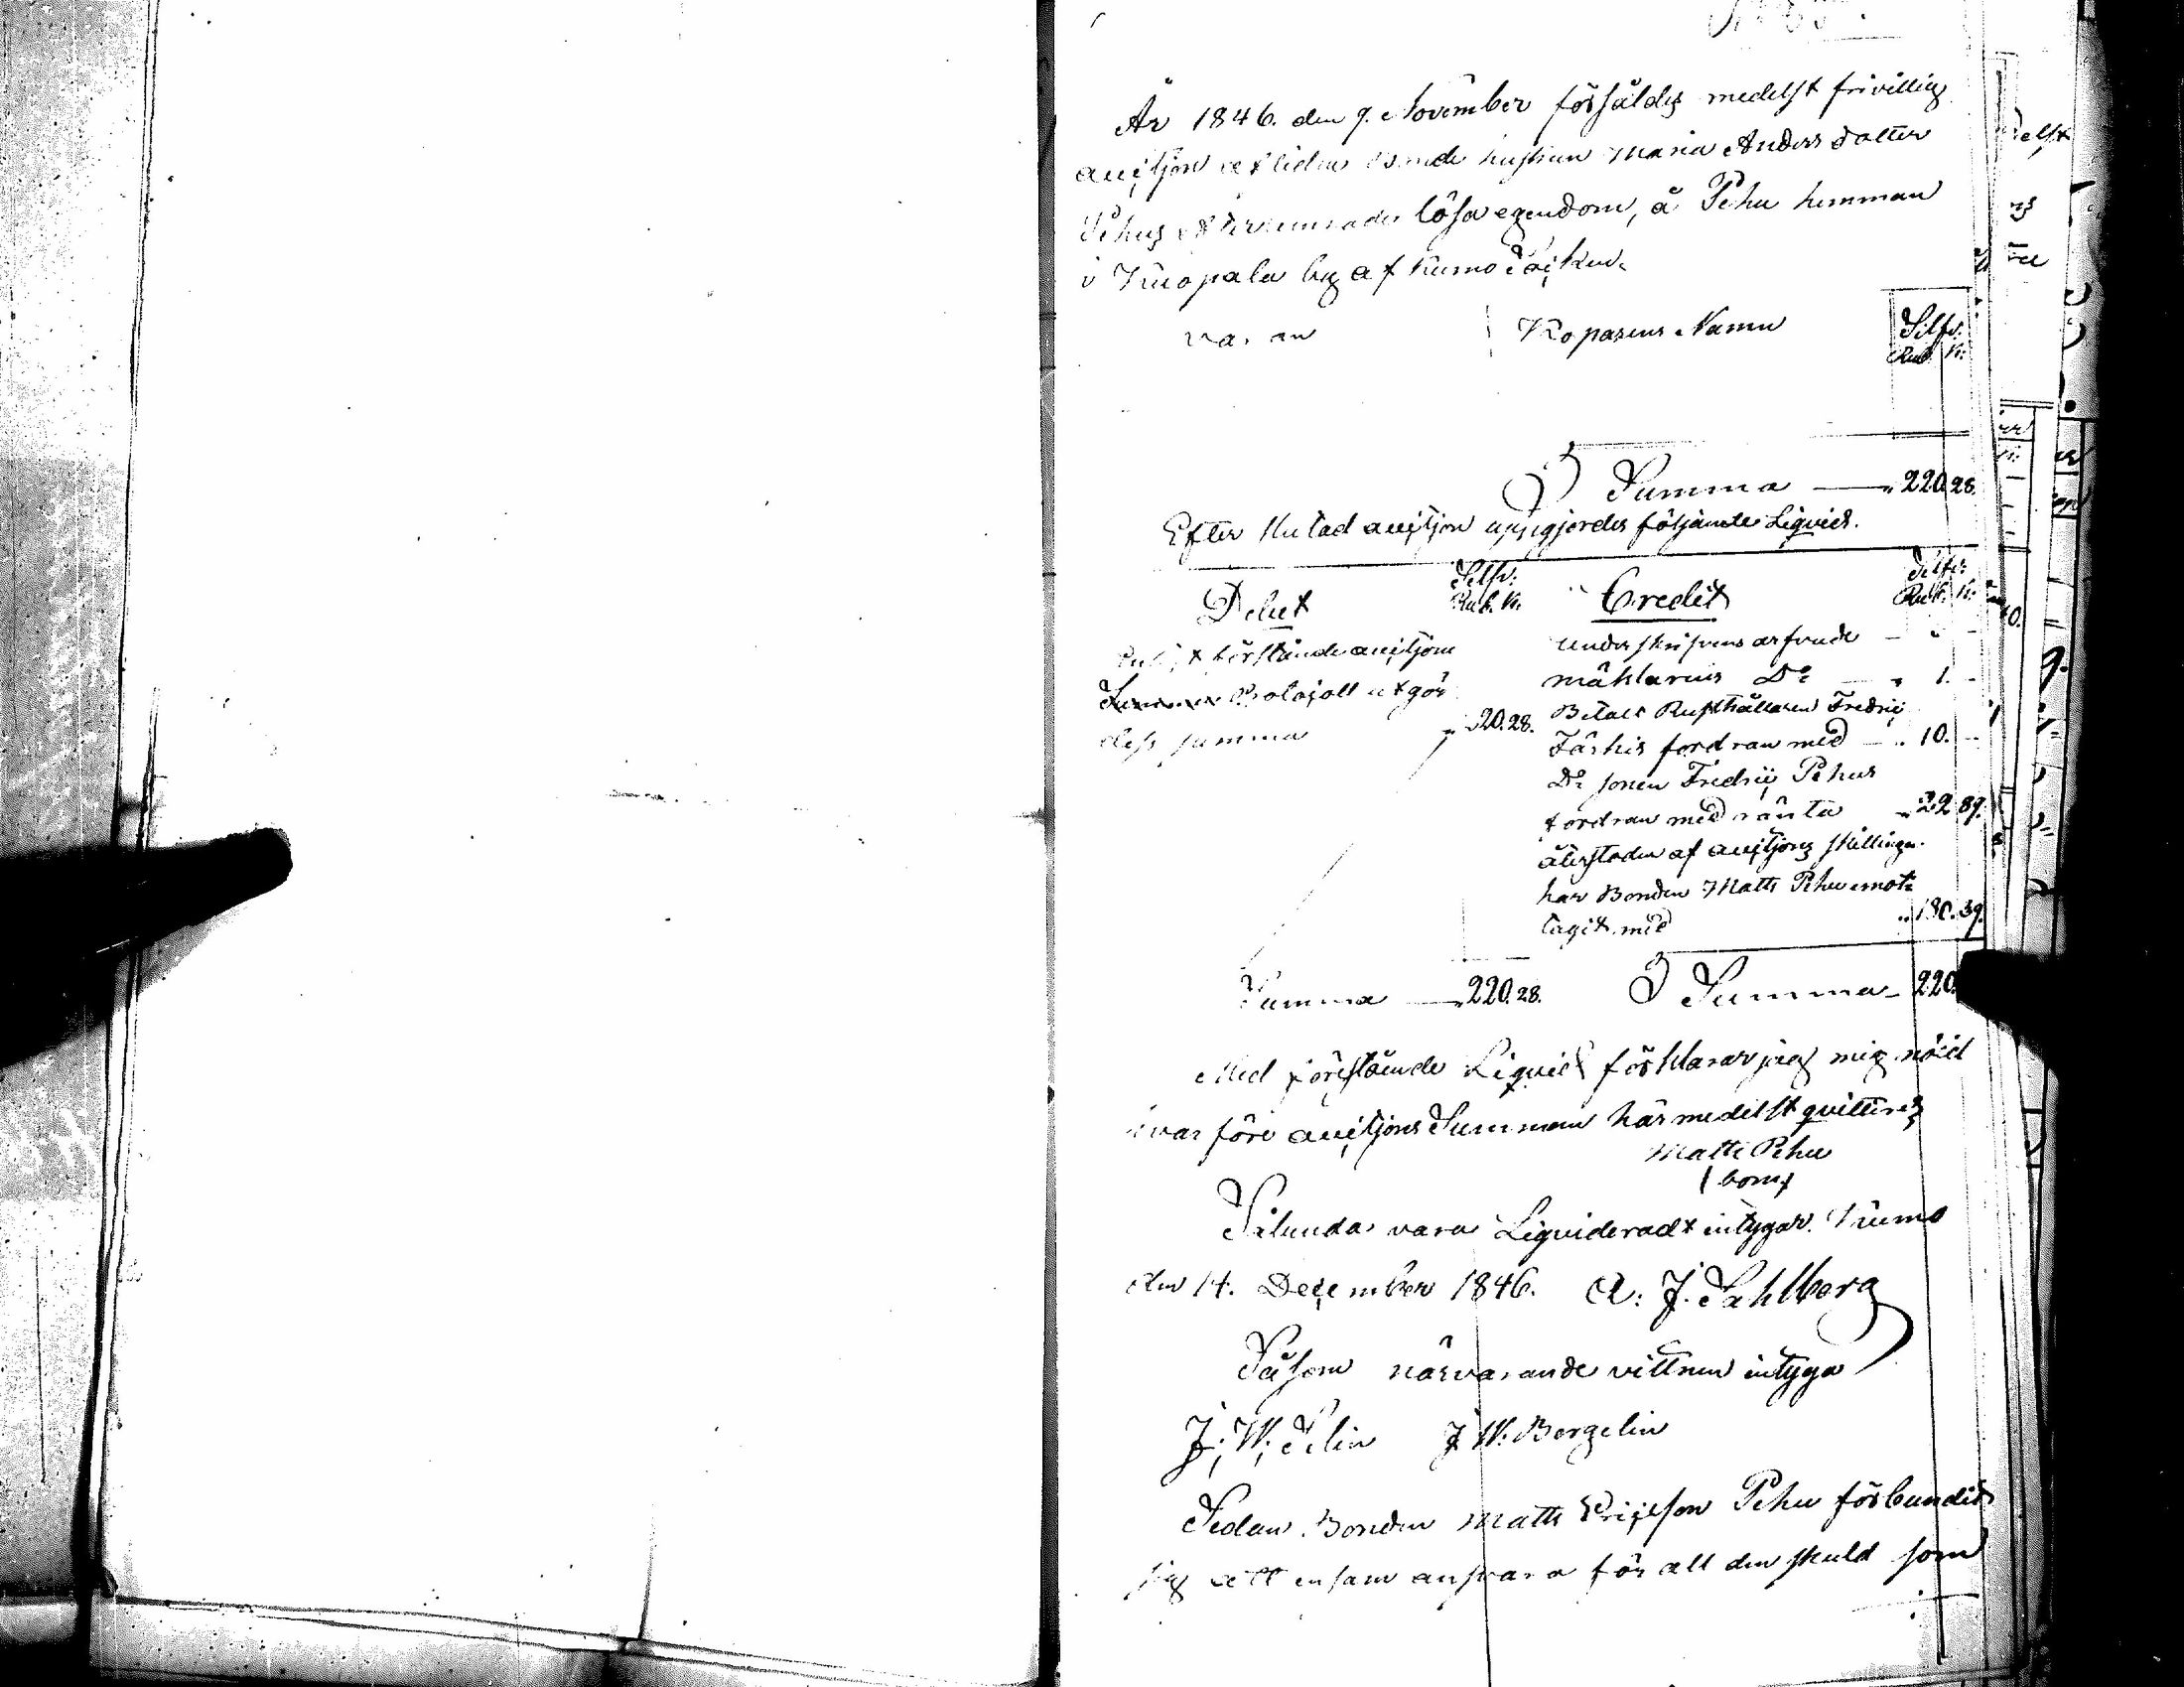 År 1846. den 9. November försåldes medelst frivillig
auction aflidne Bonde hustrun Maria Anders dotter
Pehus efterlemnade lösa egendom, å Pehu hemman
i Kuopala by af Kumo Socken.
Varan Köparens Namn Silfv: Rub. K:
Summa — " 220.28.
Efter slutad auction uppgjordes följande Liquid.
Debet Silfv: Rub. K. Credit Silfv: Rub. K:
Enligt förestående auctions
Protocoll utgör
dess summa " 220.28.
Underskrifvens arfvode — "
mäklarens D:o — " 1. -
Betalt Rusthållaren Fredric
fordran med — " 10. -
D:o sonen Fredric Pehus
fordran med ränta " 22 89.
återstoden af auctions skillingen
har Bonden Matts Pehu emot-
tagit med " 180.39.
Summa — " 220.28. Summa - 220.
Med förestående Liquid förklarar jag mig nöjd
hvarföre auctions Summan härmedelst quitteras
Matts Pehu
(bom)
Sålunda vara Liquideradt intygar. Kumo
den 14. December 1846. A: J. Sahlberg
Såsom närvarande vittnen intyga
J: W: Selin J W: Bergelin
Sedan Bonden Matts Ericsson Pehu förbundit
sig att ensam ansvara för all den skuld som